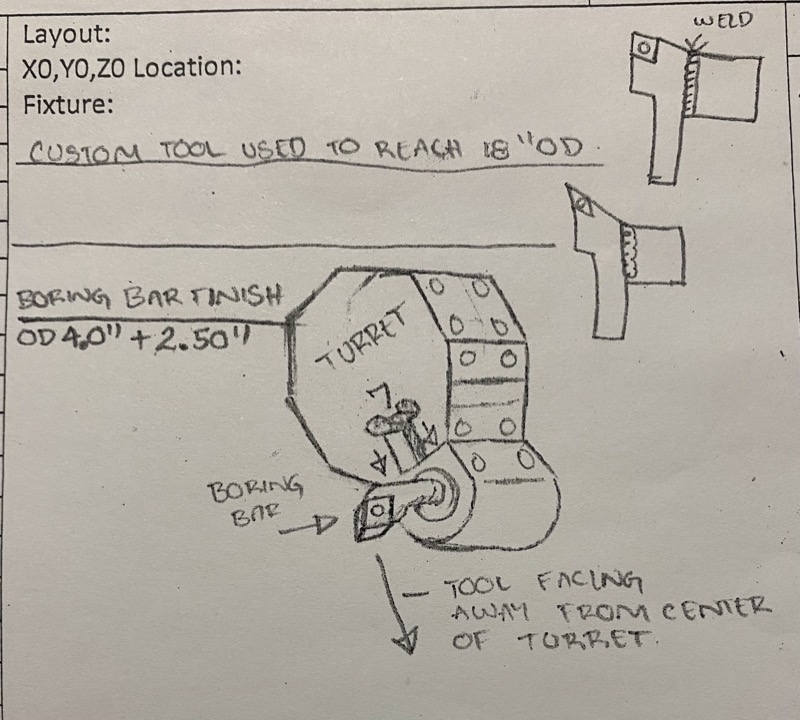 WELD
Layout:
X0,Y0,Z0 Location:
Fixture:
CUSTOM TOOL USED TO REACH 18"OD.
BORING BAR FINISH
OD 4.0" + 2.50"
TURRET
BORING
BAR
TOOL FACING
AWAY FROM CENTER
OF TURRET.